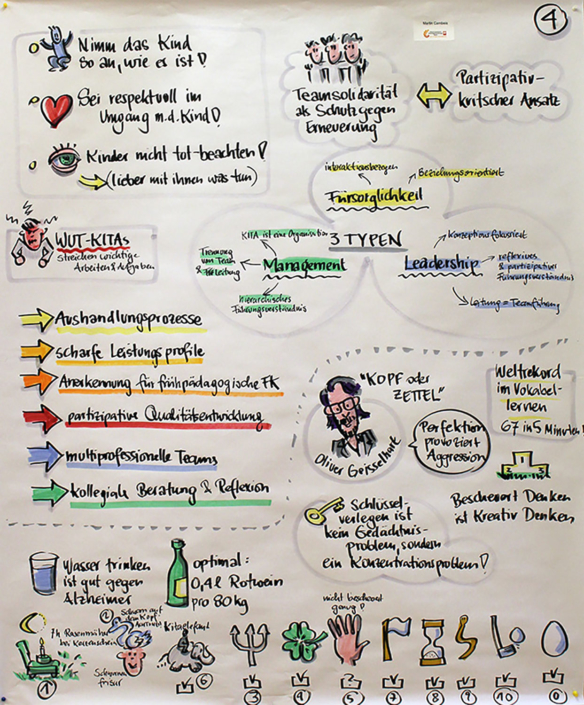 4
Nimm das Kind
so an, wie es ist!
Sei respektvoll im
Umgang m.d. Kind!
Kinder nicht tot-beachten!
(lieber mit ihnen was tun)
Teamsolidarität
als Schutz gegen
Erneuerung
Partizipativ-
kritischer Ansatz
interaktionsbezogen
Beziehungsorientiert
Fürsorglichkeit
3 TYPEN
KITA ist eine Organisation
Trennung
von Team
& Leitung
Management
hierarchisches
Führungsverständnis
Konzeptionsfokussiert
Leadership
reflexives
& partizipatives
Führungsverständnis
Leitung = Teamführung
WUT-KITAs
streichen wichtige
Arbeiten & Aufgaben
Aushandlungsprozesse
scharfe Leistungsprofile
Anerkennung für frühpädagogische FK
partizipative Qualitätsentwicklung
multiprofessionelle Teams
kollegiale Beratung & Reflexion
"KOPF oder
ZETTEL"
Oliver Geisselhart
Perfektion
provoziert
Aggression
Weltrekord
im Vokabel-
lernen
67 in 5 Minuten!
1
2
3
Bescheuert Denken
ist Kreativ Denken
Schlüssel-
verlegen ist
kein Gedächtnis-
problem, sondern
ein Konzentrationsproblem!
Wasser trinken
ist gut gegen
Alzheimer
optimal:
0,4 l Rotwein
pro 80 kg
7h Rasenmäher
bei Kerzenschein
1
2
Schwan auf
dem Kopf
Kitaelefant
6
3
4
nicht bescheuert
genug!
5
7
8
9
10
0